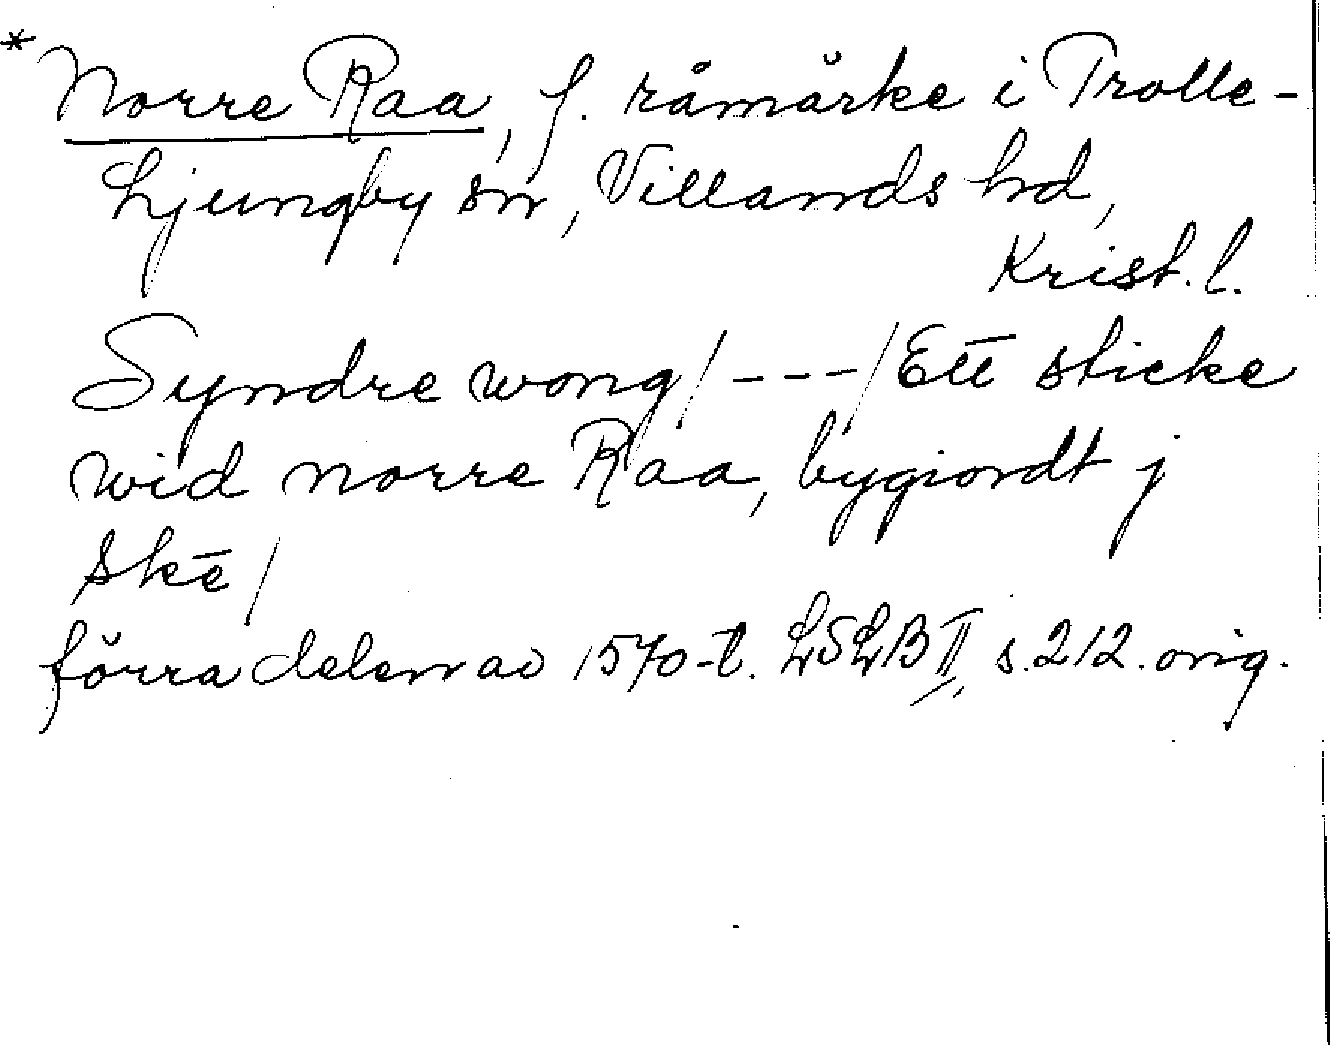 * Norre Raa, f. råmärke i Trolle-
Ljungby sn, Villands hd,
Krist. l.
Syndre wong/---/Ett sticke
wid norre Raa, bygiordt j
Skē/
förra delen av 1570-t. LSLB II, s. 212. orig.